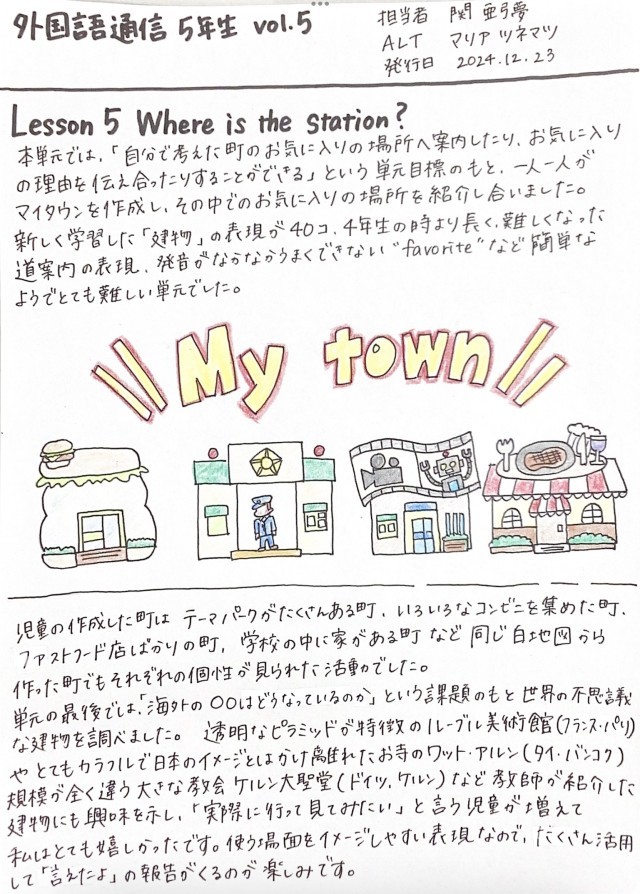 外国語通信 5年生 vol.5
担当者 関 亜弓夢
ALT マリア ツネマツ
発行日 2024.12.23
Lesson 5 Where is the station?
本単元では、「自分で考えた町のお気に入りの場所へ案内したり、お気に入り
の理由を伝え合ったりすることができる」という単元目標のもと、一人一人が
マイタウンを作成し、その中でのお気に入りの場所を紹介し合いました。
新しく学習した「建物」の表現が40コ、4年生の時より長く、難しくなった
道案内の表現、発音がなかなかうまくできない"favorite"など簡単な
ようでとても難しい単元でした。
My town
児童の作成した町は テーマパークがたくさんある町、いろいろなコンビニを集めた町、
ファストフード店ばかりの町、学校の中に家がある町など 同じ白地図から
作った町でもそれぞれの個性が見られた活動でした。
単元の最後では、「海外の〇〇はどうなっているのか」という課題のもと世界の不思議
な建物を調べました。 透明なピラミッドが特徴のルーブル美術館(フランス・パリ)
や とてもカラフルで日本のイメージとはかけ離れたお寺のワット・アルン(タイ・バンコク)
規模が全く違う大きな教会 ケルン大聖堂(ドイツ、ケルン)など教師が紹介した
建物にも興味を示し、「実際に行って見てみたい」と言う児童が増えて
私はとても嬉しかったです。使う場面をイメージしやすい表現なので、たくさん活用
して「言えたよ」の報告がくるのが楽しみです。